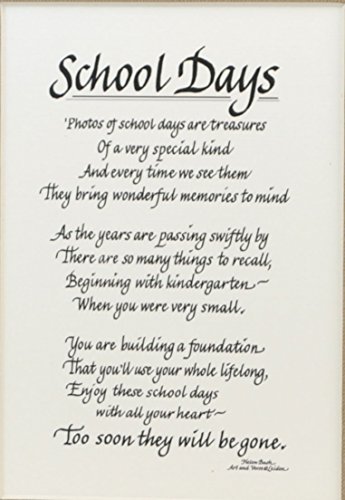 School Days
'Photos of school days are treasures
Of a very special kind
And every time we see them
They bring wonderful memories to mind
As the years are passing swiftly by
There are so many things to recall,
Beginning with kindergarten ~
When you were very small.
You are building a foundation
That you'll use your whole lifelong,
Enjoy these school days
with all your heart ~
Too soon they will be gone.
Helen Bush
Art and Verse